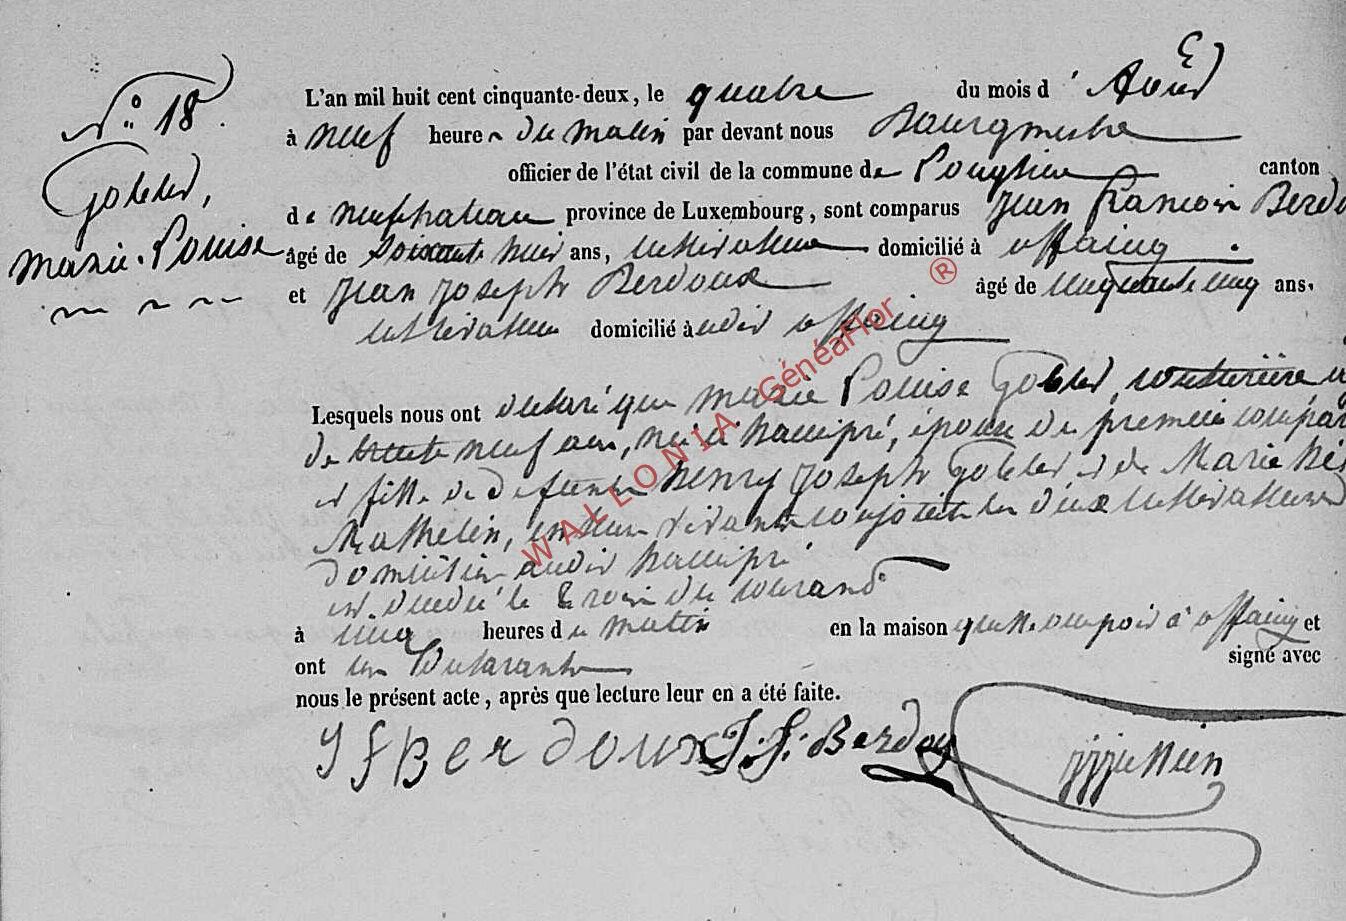 N° 18.
Goblet,
Marie-Louise
L'an mil huit cent cinquante-deux, le quatre du mois d'Août
à neuf heures du matin par devant nous Bourgmestre
officier de l'état civil de la commune de canton
de neufchateau province de Luxembourg, sont comparus Jean françois Berdo
âgé de soixante huit ans, cultivateur domicilié à offaing
et Jean Joseph Berdoux âgé de cinquante cinq ans,
cultivateur domicilié à udit offaing
Lesquels nous ont déclaré que marie Louise Goblet, couturière
de trente neuf ans, née à hamipré, épouse du premier compar
et fille de defunts henry Joseph Goblet et de Marie
Mathelin, en leur vivant conjoints cultivateurs
domiciliés audit hamipré
est décédée le trois du courant
à cinq heures du matin en la maison qu'elle occupoit à offaing et
ont les déclarants signé avec
nous le présent acte, après que lecture leur en a été faite.
J f Berdoux J. J. Berdoux
WALLONIA GénéaFlor ®